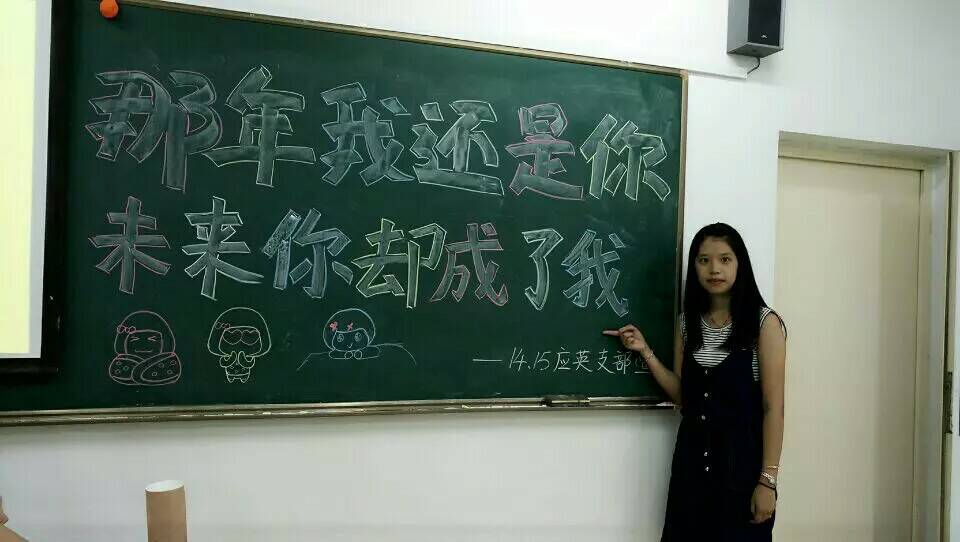 那年我还是你
未来你却成了我
—14.15应英支部